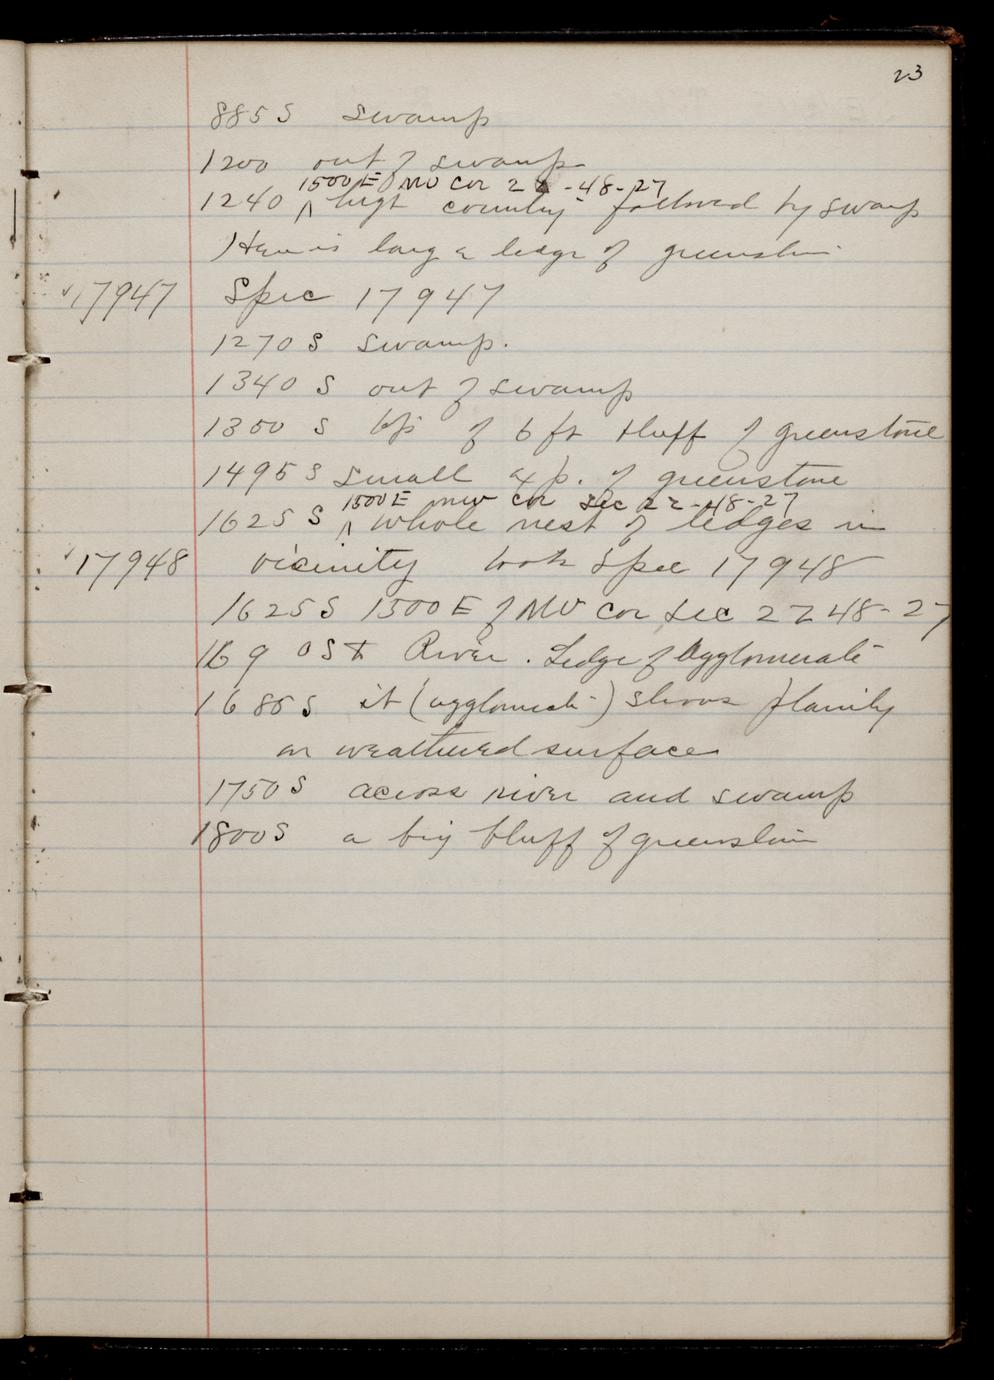 23
885 S swamp
1200 out of swamp
1500 E NW cor 22-48-27
1240 ^ high country followed by swamp
Here is large ledge of greenstone
17947 Spec 17947
1270 S swamp.
1340 S out of swamp
1350 S top of 6 ft bluff of greenstone
1495 S small exp. of greenstone
1500 E NW cor Sec 22-48-27
1625 S ^ whole nest of ledges in
17948 vicinity took Spec 17948
1625 S 1500 E of NW cor Sec 22 48-27
1690 S River. Ledge of Agglomerate
1685 S it (agglomerate) shows plainly
on weathered surface
1750 S across river and swamp
1800 S a big bluff of greenstone